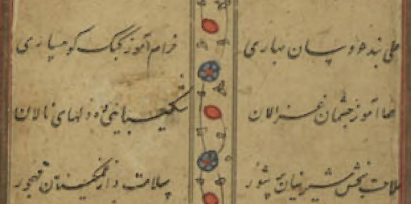 حلی بند عروسان بهاری
خرام آموز کبک کوهساری
آموز چشمان غزالان
شکیبایی ده دلهای نالان
ملاحت بخش شیرینان پرشور
مهجور